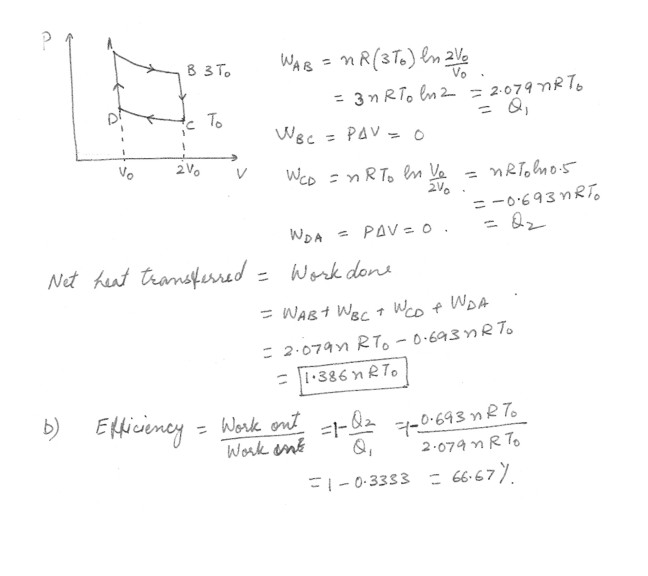 P
A
B 3T₀
D
C T₀
V₀ 2V₀ V
W_AB = nR(3T₀) ln 2V₀/V₀
= 3nRT₀ ln2 = 2.079nRT₀
= Q₁
W_BC = PΔV = 0
W_CD = nRT₀ ln V₀/2V₀ = nRT₀ ln0.5
= -0.693nRT₀
= Q₂
W_DA = PΔV = 0.
Net heat transferred = Work done
= W_AB + W_BC + W_CD + W_DA
= 2.079n RT₀ - 0.693nRT₀
= 1.386nRT₀
b) Efficiency = Work out/Work = 1 - Q₂/Q₁ = 1 - 0.693nRT₀/2.079nRT₀
= 1 - 0.3333 = 66.67%.